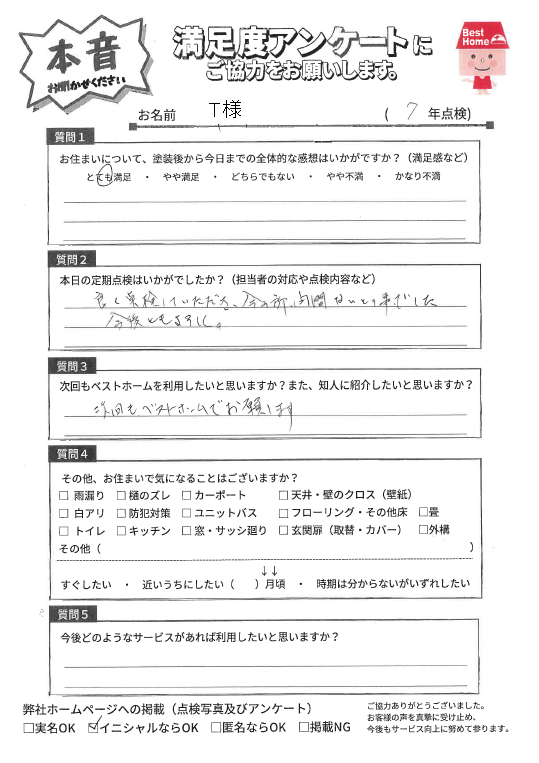 本音
お聞かせください
満足度アンケートに
ご協力をお願いします。
Best Home
お名前 T様 ( 7 年点検)
質問1
お住まいについて、塗装後から今日までの全体的な感想はいかがですか？（満足感など）
とても満足 ・ やや満足 ・ どちらでもない ・ やや不満 ・ かなり不満
質問2
本日の定期点検はいかがでしたか？（担当者の対応や点検内容など）
良く点検していただき、今の所、問題ないとの事でした
今後ともよろしく。
質問3
次回もベストホームを利用したいと思いますか？また、知人に紹介したいと思いますか？
次回もベストホームでお願いします
質問4
その他、お住まいで気になることはございますか？
□ 雨漏り □ 樋のズレ □ カーポート □ 天井・壁のクロス（壁紙）
□ 白アリ □ 防犯対策 □ ユニットバス □ フローリング・その他床 □畳
□ トイレ □ キッチン □ 窓・サッシ廻り □ 玄関扉（取替・カバー） □外構
その他（ ）
↓↓
すぐしたい ・ 近いうちにしたい（ ）月頃 ・ 時期は分からないがいずれしたい
質問5
今後どのようなサービスがあれば利用したいと思いますか？
弊社ホームページへの掲載（点検写真及びアンケート）
□実名OK ☑イニシャルならOK □匿名ならOK □掲載NG
ご協力ありがとうございました。
お客様の声を真摯に受け止め、
今後もサービス向上に努めて参ります。